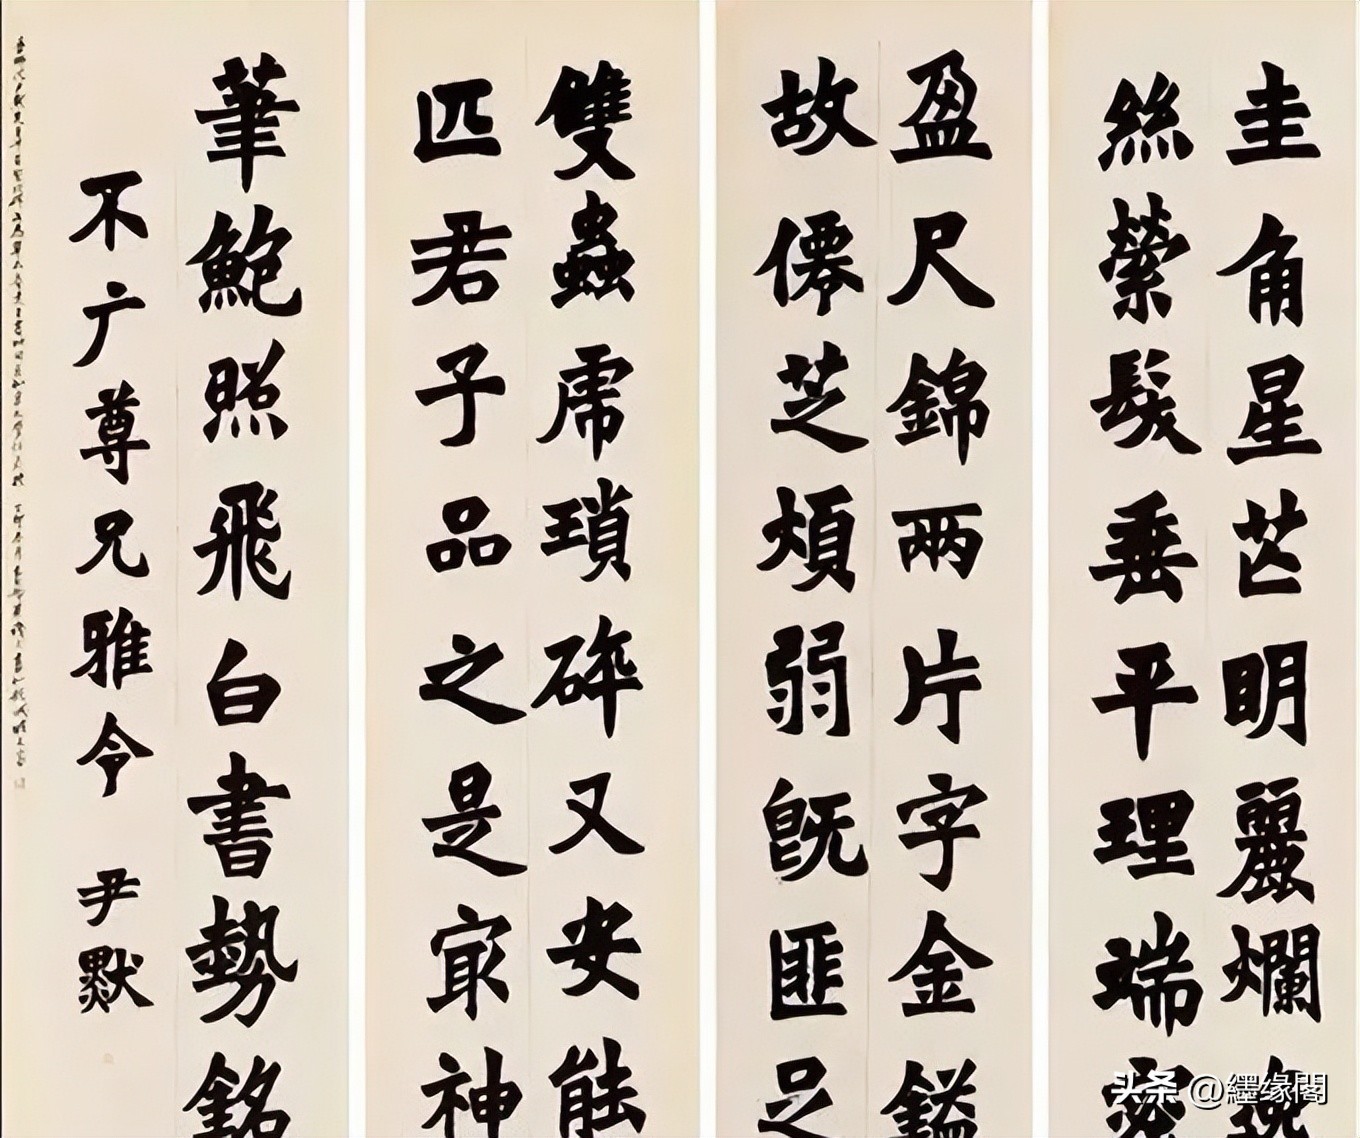 圭角星芒明麗爛逸
絲縈髮垂平理端密
盈尺錦兩片字金鎰
故僊芝煩弱既匪足
雙蟲虎瑣碎又安能
匹君子品之是冣神
筆鮑照飛白書勢銘
不广尊兄雅令 尹默
头条 @纆缘閣